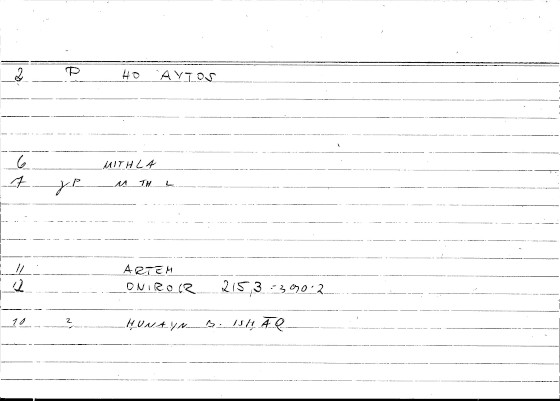 2 P HO AYTOS
6 MITHLA
7 γP M TH L
11 ARTEM
12 ONIROCR 215,3 - 390.2
10 2 ḤUNAYN B. ISḤĀQ